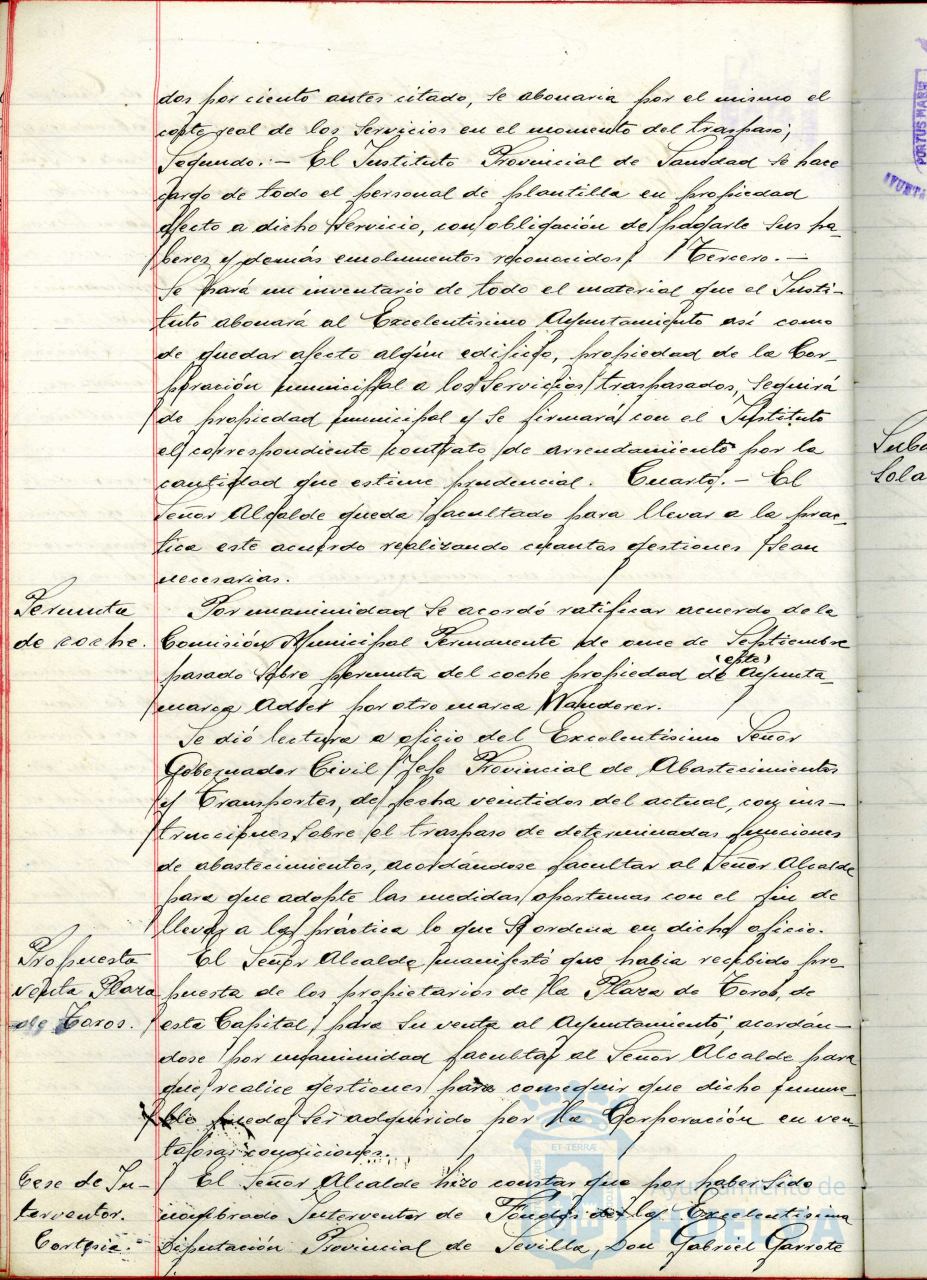 dos por ciento antes citado, se abonaria por el mismo el
coste real de los Servicios en el momento del traspaso;
Segundo.- El Instituto Provincial de Sanidad se hace
cargo de todo el personal de plantilla en propiedad
afecto a dicho Servicio, con obligación de pagarle sus ha-
beres y demás emolumentos reconocidos; Tercero.-
Se hará un inventario de todo el material que el Insti-
tuto abonará al Excelentisimo Ayuntamiento así como
de quedar afecto algún edificio, propiedad de la Cor-
poración municipal a los Servicios traspasados, seguirá
de propiedad municipal y se firmará con el Instituto
el correspondiente contrato de arrendamiento por la
cantidad que estime prudencial. Cuarto.- El
Señor Alcalde queda facultado para llevar a la prac-
tica este acuerdo realizando cuantas gestiones sean
necesarias.
Permuta
de coche.
Por unanimidad se acordó ratificar acuerdo de la
Comisión Municipal Permanente de once de Septiembre
pasado sobre permuta del coche propiedad de (este) Ayunta-
marca por otro marca Wanderer.
Se dió lectura a oficio del Excelentísimo Señor
Gobernador Civil Jefe Provincial de Abastecimientos
y Transportes, de fecha veintidos del actual, con ins-
trucciones sobre el traspaso de determinadas funciones
de abastecimientos, acordándose facultar al Señor Alcalde
para que adopte las medidas oportunas con el fin de
llevar a la práctica lo que se ordena en dicho oficio.
Propuesta
venta Plaza
de Toros.
El Señor Alcalde manifestó que habia recibido pro-
puesta de los propietarios de la Plaza de Toros, de
esta Capital, para su venta al Ayuntamiento, acordán-
dose por unanimidad facultar al Señor Alcalde para
que realice gestiones para conseguir que dicho inmue-
ble pueda ser adquirido por la Corporación en ven-
tajosas condiciones.
Cese de In-
terventor.
Cortesia.
El Señor Alcalde hizo constar que por haber sido
nombrado Interventor de Fondos de la Excelentisima
Diputación Provincial de Sevilla, Don Gabriel Garrote
Sola
PORTUS MARIS
ET TERRÆ
Ayuntamiento de
HUELVA